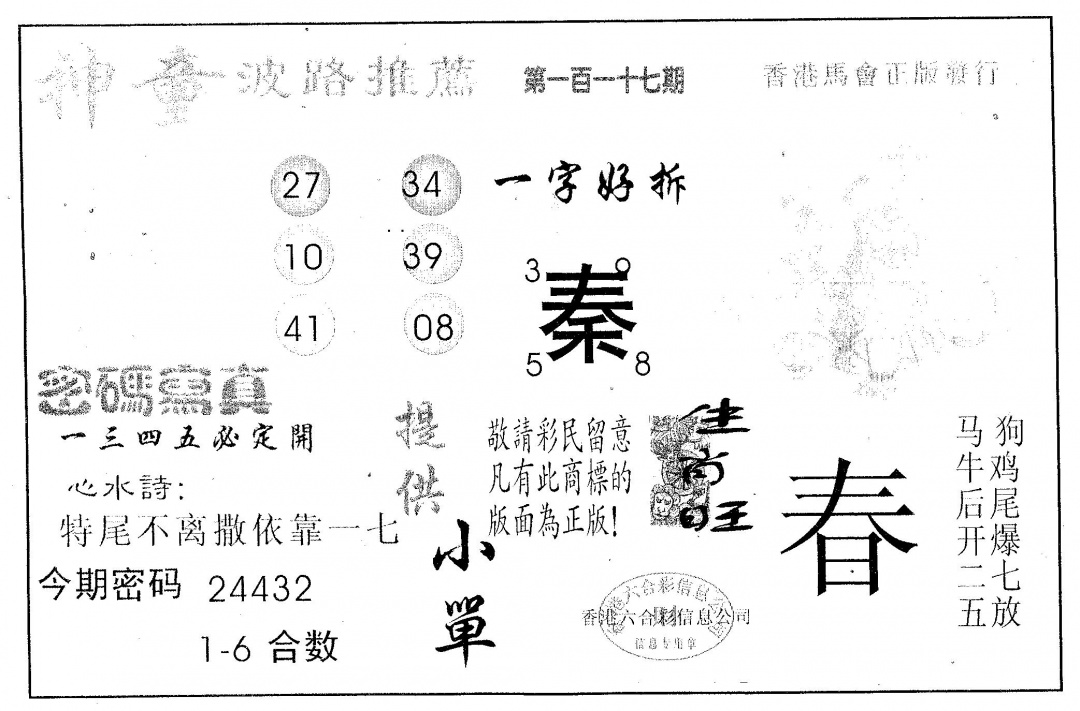 神童 波路推薦 第一百一十七期 香港馬會正版發行
27 34
10 39
41 08
一字好拆
3 9
秦
5 8
密碼寫真
一三四五必定開
心水詩：
特尾不离撒依靠一七
今期密码 24432
1-6 合数
提供
小單
敬請彩民留意
凡有此商標的
版面為正版！
春
狗鸡尾爆七放
马牛后开二五
香港六合彩信息公司